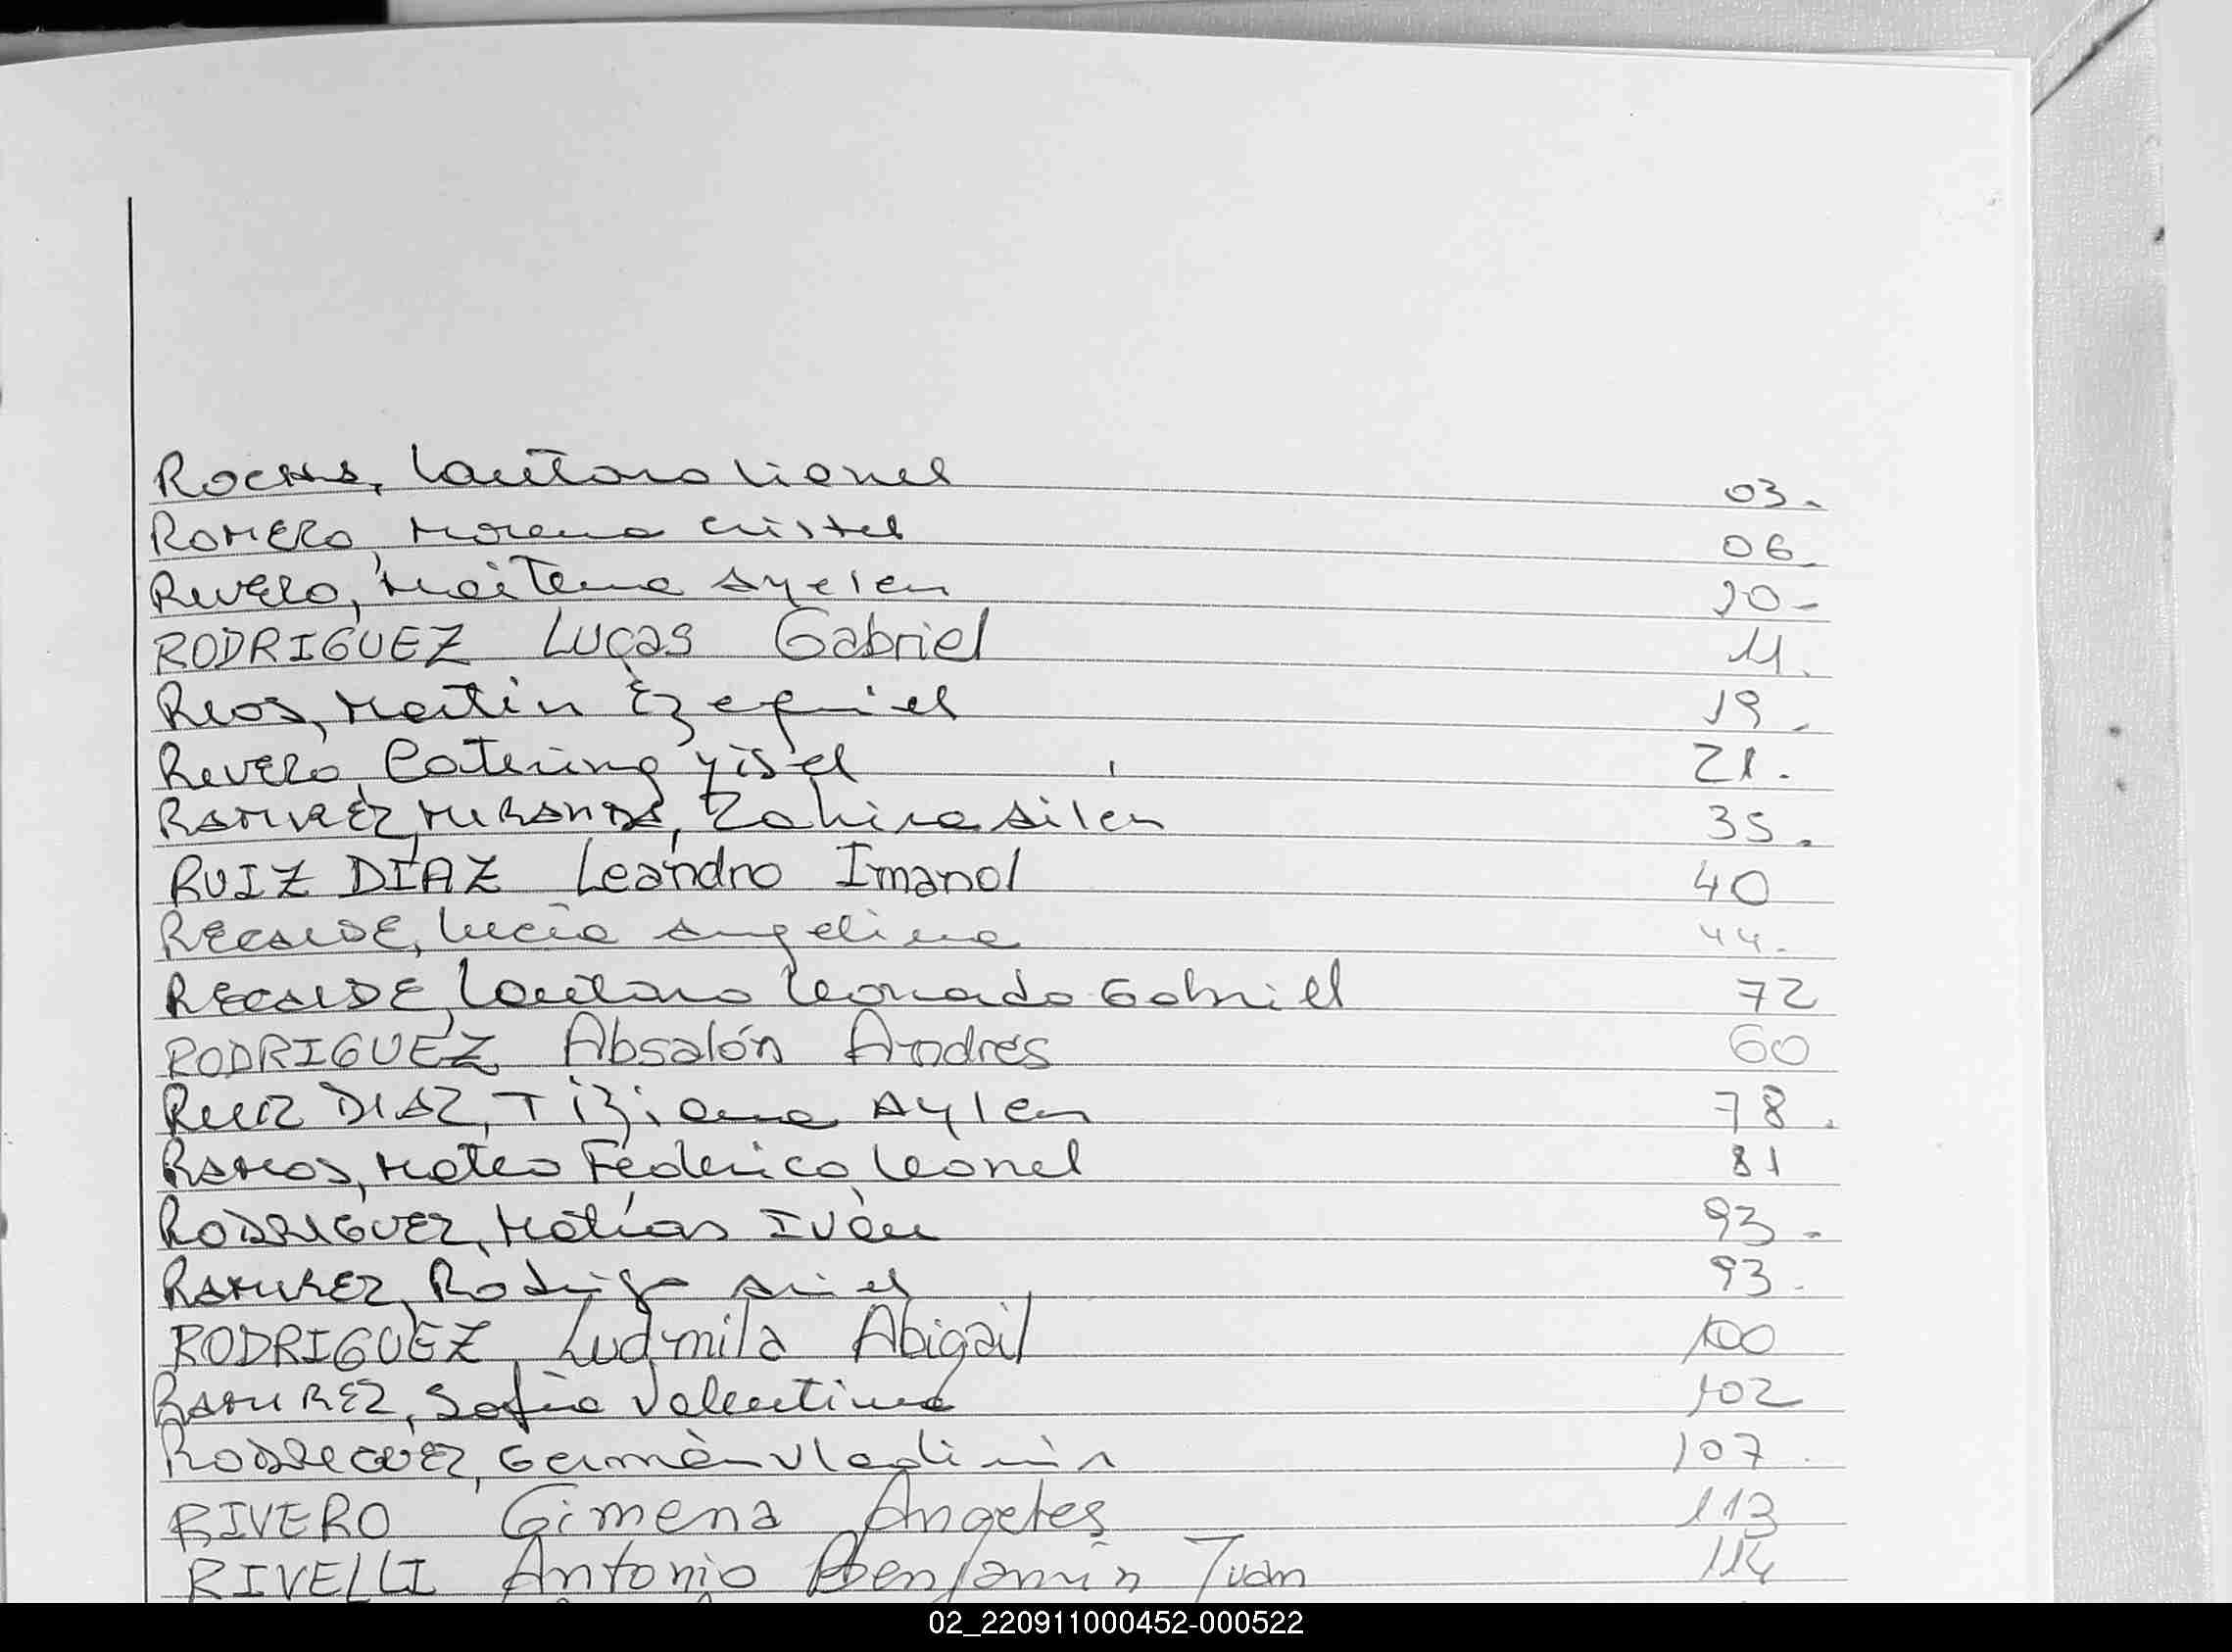 ROCHA, Lautaro Lionel 03.
ROMERO, Morena Cristel 06.
RIVERO, Maitena Ayelen 10-
RODRIGUEZ Lucas Gabriel 11.
RIOS, Martin Ezequiel 19.
RIVERO, Caterina Yisel 21.
RAMIREZ MIRANDA, Zahira Ailen 35.
RUIZ DIAZ Leandro Imanol 40
RECALDE, Lucía Angelina 44.
RECALDE, Lautaro Leonardo Gabriel 72
RODRIGUEZ Absalón Andrés 60
RUIZ DIAZ, Tiziana Aylen 78.
RAMOS, Mateo Federico Leonel 81
RODRIGUEZ, Matías Iván 93-
RAMIREZ, Rodrigo Ariel 93.
RODRIGUEZ, Ludmila Abigail 100
RAMIREZ, Sofía Valentina 102
RODRIGUEZ, Germán Vladimir 107.
RIVERO Gimena Angeles 113
RIVELLI Antonio Benjamín Juan 114
02_220911000452-000522